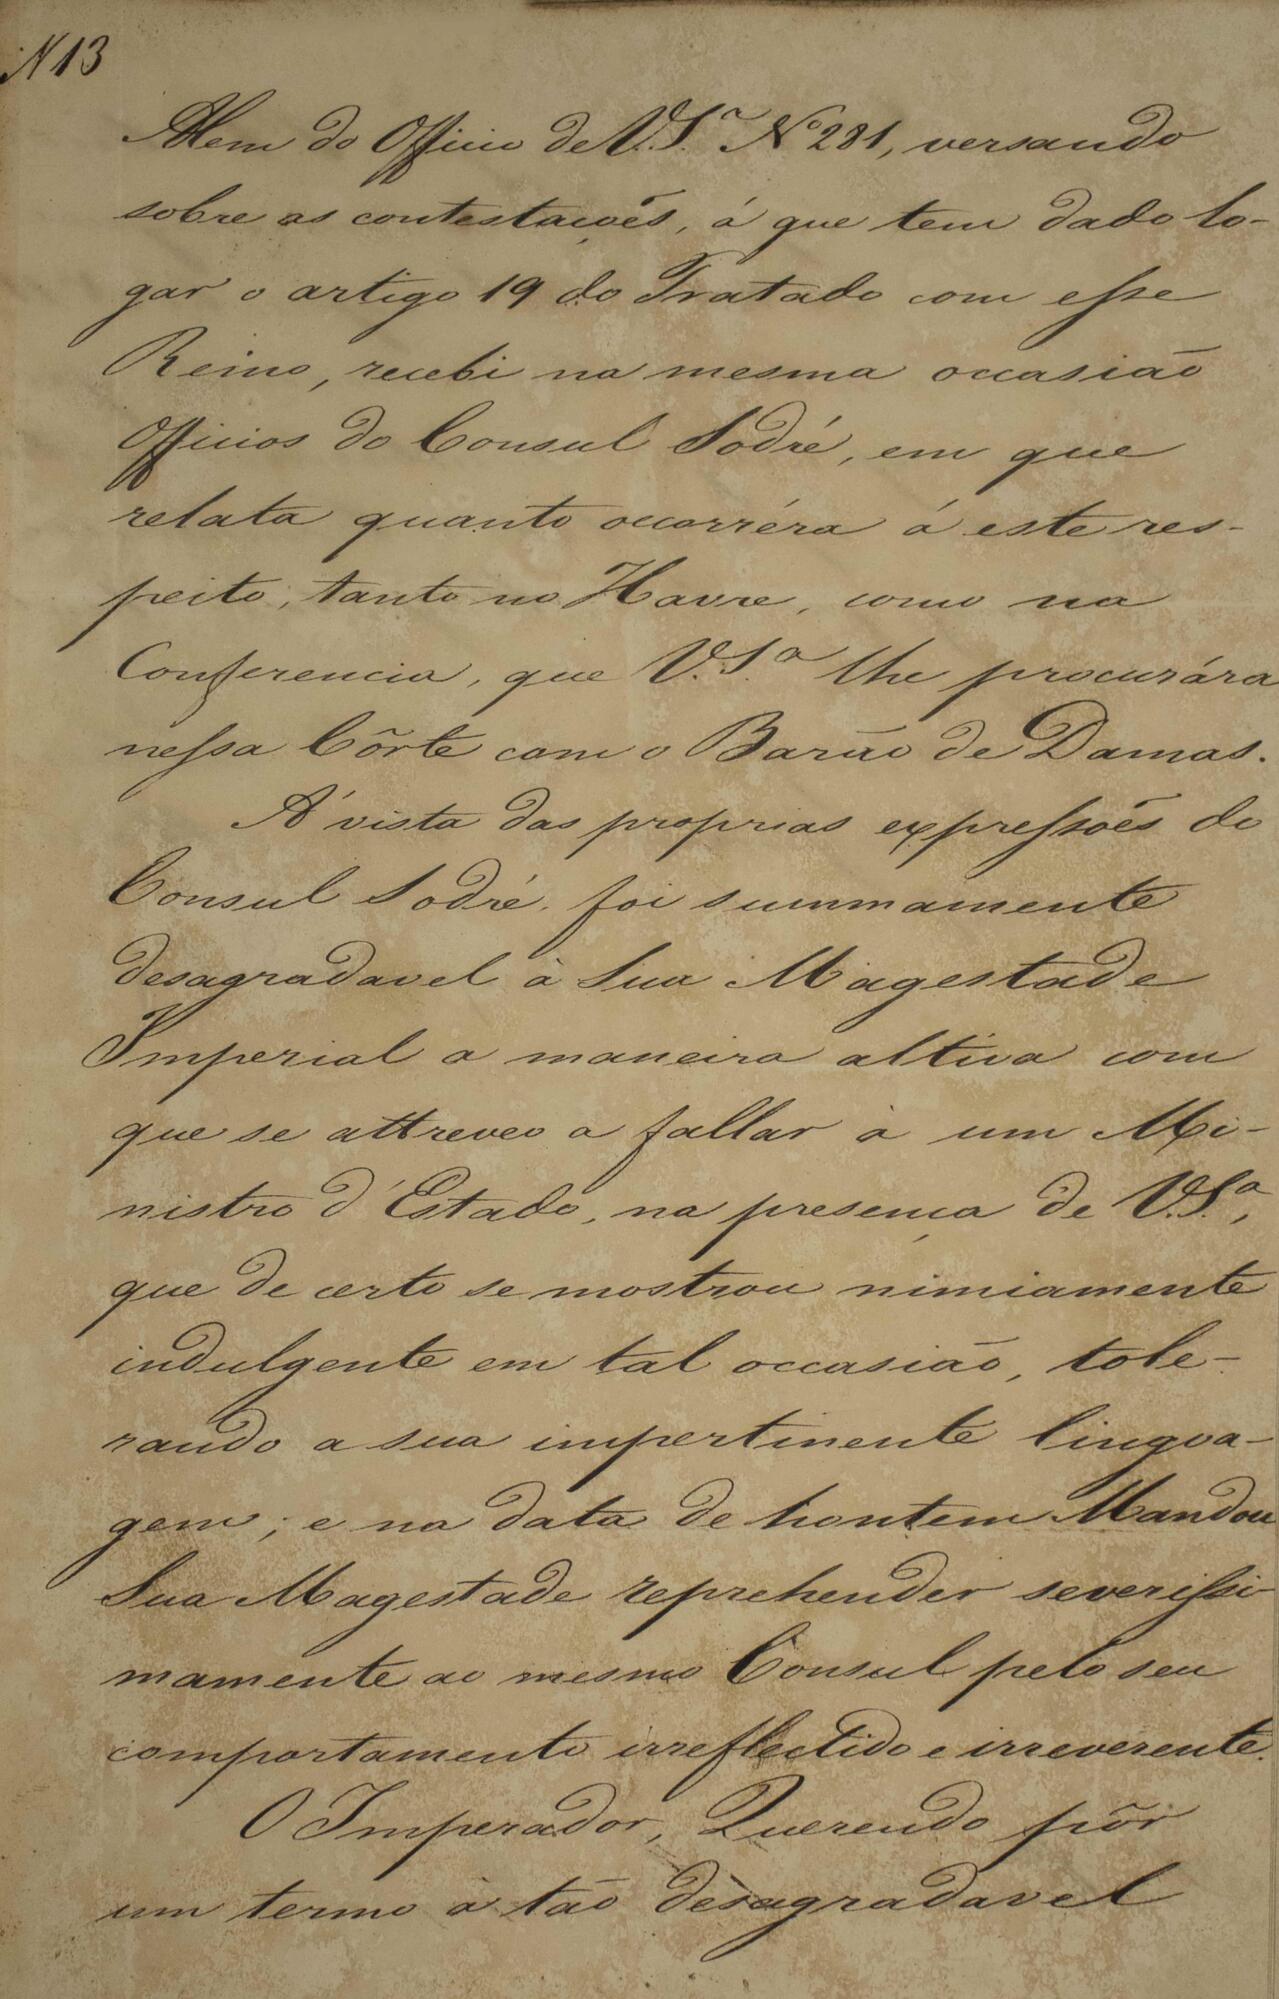 N 13
Alem do Officio de V.S.ª Nº 281, versando
sobre as contestações, á que tem dado lo-
gar o artigo 19 do Tratado com esse
Reino, recebi na mesma occasião
Officios do Consul Sodré, em que
relata quanto occorrêra á este res-
peito, tanto no Havre, como na
Conferencia, que V.S.ª lhe procurára
nessa Côrte com o Barão de Damas.
Á vista das proprias expressões do
Consul Sodré, foi summamente
desagradavel à Sua Magestade
Imperial a maneira altiva com
que se attreveo a fallar à um Mi-
nistro d'Estado, na presença de V.S.ª,
que de certo se mostrou nimiamente
indulgente em tal occasião, tole-
rando a sua impertinente lingoa-
gem; e na data de hontem Mandou
Sua Magestade reprehender severissi-
mamente ao mesmo Consul pelo seu
comportamento irreflectido e irreverente.
O Imperador, Querendo pôr
um termo à tão desagradavel